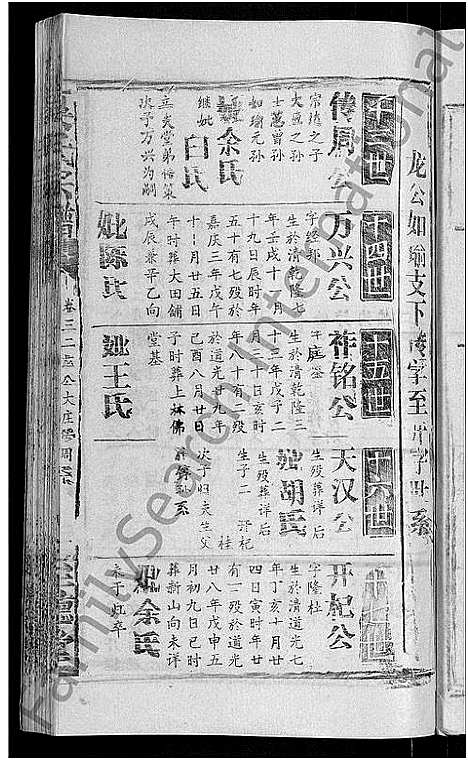 龙公如瑜支下传字至开字世系
十三世
传周公
宗德之子
大道之孙
士蕙曾孙
如瑜元孙
妣余氏
继妣白氏
立炎堂弟传策
次子万兴为嗣
十四世
万兴公
字经邦
生於清乾隆七
年壬戌十一月
十九日辰时年
五十有七殁於
嘉庆三年戊午
十一月廿五日
午时葬大田铺
戌辰兼辛乙向
妣陈氏
十五世
祚铭公
字庭鉴
生於清乾隆三
十三年戊子二
月三十日亥时
年八十有二殁
於道光廿九年
己酉八月廿日
子时葬上林佛
堂基
妣王氏
十六世
天汉公
生殁葬详后
妣胡氏
生殁葬详后
生子二 开杞
桂
次子归夫生父
祚
系
十七世
开杞公
字隆杜
生於清道光七
年丁亥十月廿
四日寅时年廿
有一殁於道光
廿八年戊申五
月初九日巳时
葬新山向未详
妣余氏
未于氏卒
卷三二
FamilySearch International